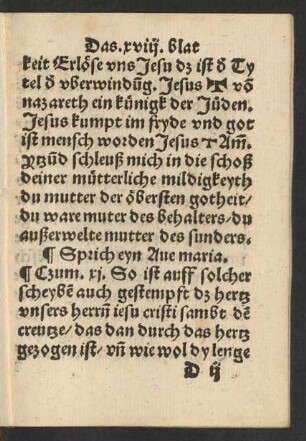 Das.xviij. blat
keit Erlöse vns Jesu dz ist d̕ Ty
tel d̕ vberwindūg. Jesus ✠ vō
nazareth ein künigk der Jüden.
Jesus kumpt im fryde vnd got
ist mensch worden Jesus ☩ Am̄.
Ytzūd schleuß mich in die schoß
deiner mütterliche mildigkeyth
du mutter der öbersten gotheit/
du ware muter des behalters/du
außerwelte mutter des sunders.
¶ Sprich eyn Aue maria.
¶ Czum. xj. So ist auff solcher
scheybē auch gestempft dz hertz
vnsers herrn̄ iesu cristi sambt dē
creutze/das dan durch das hertz
gezogen ist/vn̄ wie wol dy lenge
D ij